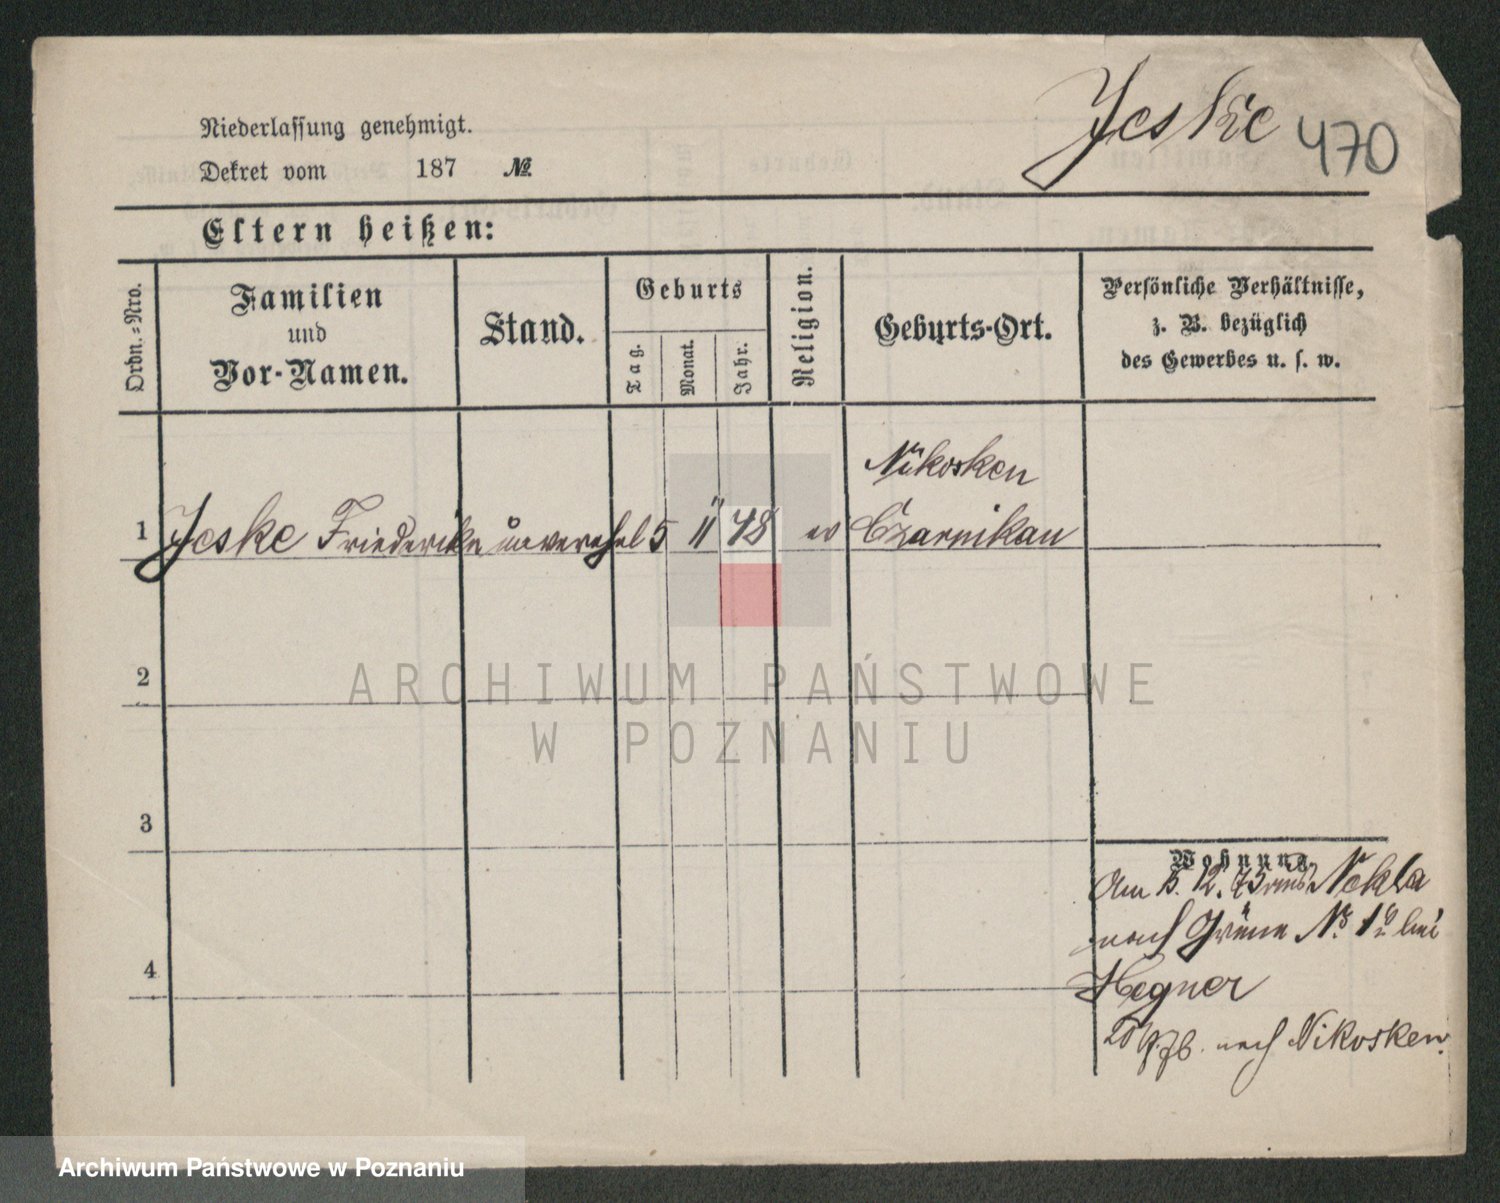 Jeske 470
Niederlassung genehmigt.
Dekret vom 187 №
Eltern heißen:
Ordn.=Nro.
Familien
und
Vor-Namen.
Stand.
Geburts
Tag.
Monat.
Jahr.
Religion.
Geburts-Ort.
Persönliche Verhältnisse,
z. B. bezüglich
des Gewerbes u. s. w.
Nikosken
1 Jeske Friederike unverehel 5 11 48 ev Czarnikau
2
3
4
Wohnung.
Am 15. 12. 75 aus Nekla
nach Grüne Nr. 1 bei
Hegner
nach Nikosken
ARCHIWUM PAŃSTWOWE
W POZNANIU
Archiwum Państwowe w Poznaniu